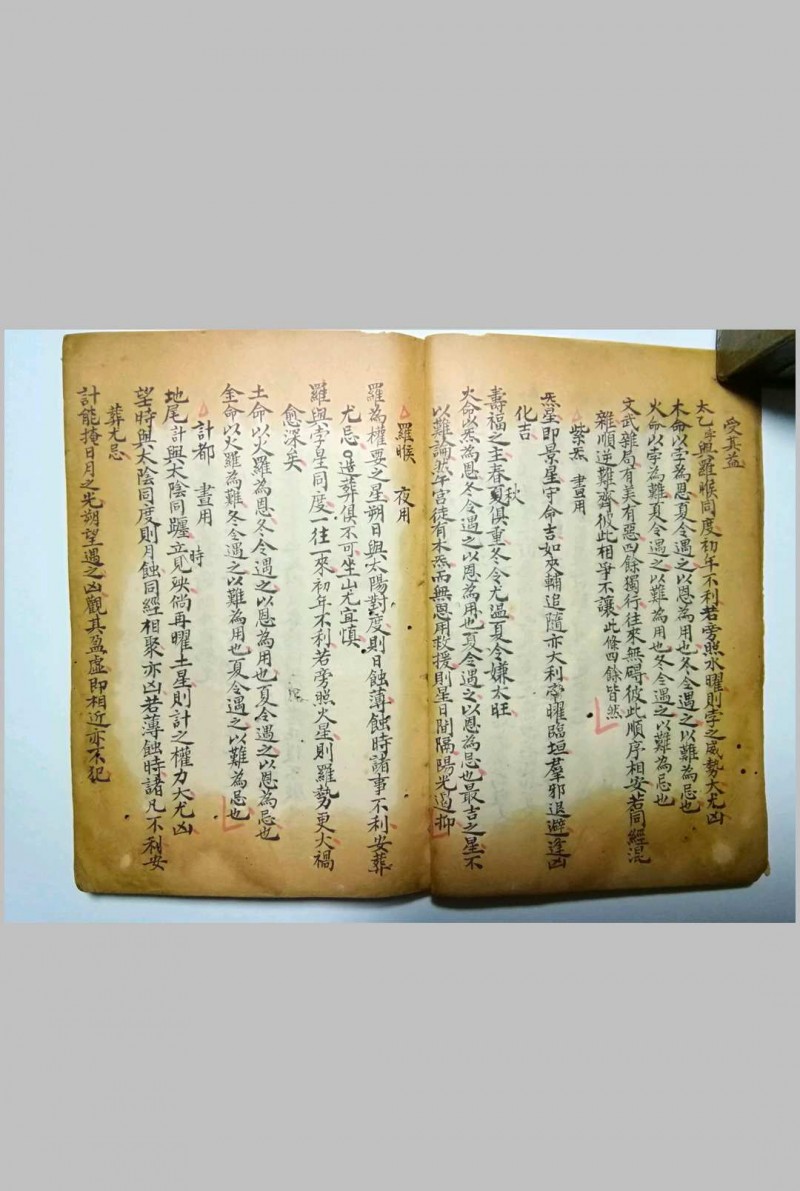 受其益
太乙孛與羅睺同度初年不利若旁照水曜則孛之威勢大尤凶
木命以孛為恩夏令遇之以恩為用也冬令遇之以難為忌也
火命以孛為難夏令遇之以難為用也冬令遇之以難為忌也
文武雜局有美有惡四餘獨行往來無碍彼此順序相安若同經混
雜順逆難齊彼此相爭不讓此條四餘皆然
紫炁 晝用
炁星即景星守命吉如夾輔追隨亦大利帝曜臨垣羣邪退避逢凶
化吉
壽福之主春夏秋俱重冬令尤温夏令嫌太旺
火命以炁為恩冬令遇之以恩為用也夏令遇之以恩為忌也最吉之星不
以難論然午宮徒有木炁而無恩用救援則星日間隔陽光遏抑
羅睺 夜用
羅為權要之星朔日與太陽對度則日蝕薄蝕時諸事不利安葬
尤忌造葬俱不可坐山尤宜慎
羅與孛星同度一往一來初年不利若旁照火星則羅勢更大禍
愈深矣
土命以火羅為恩冬令遇之以恩為用也夏令遇之以恩為忌也
金命以火羅為難冬令遇之以難為用也夏令遇之以難為忌也
計都 晝用
地尾計與太陰同躔立見殃倘再曜土星則計之權力大尤凶
望時與太陰同度則月蝕同經相聚亦凶若薄蝕時諸凡不利安
葬尤忌
計能掩日月之光朔望遇之凶觀其盈虛即相近亦不犯